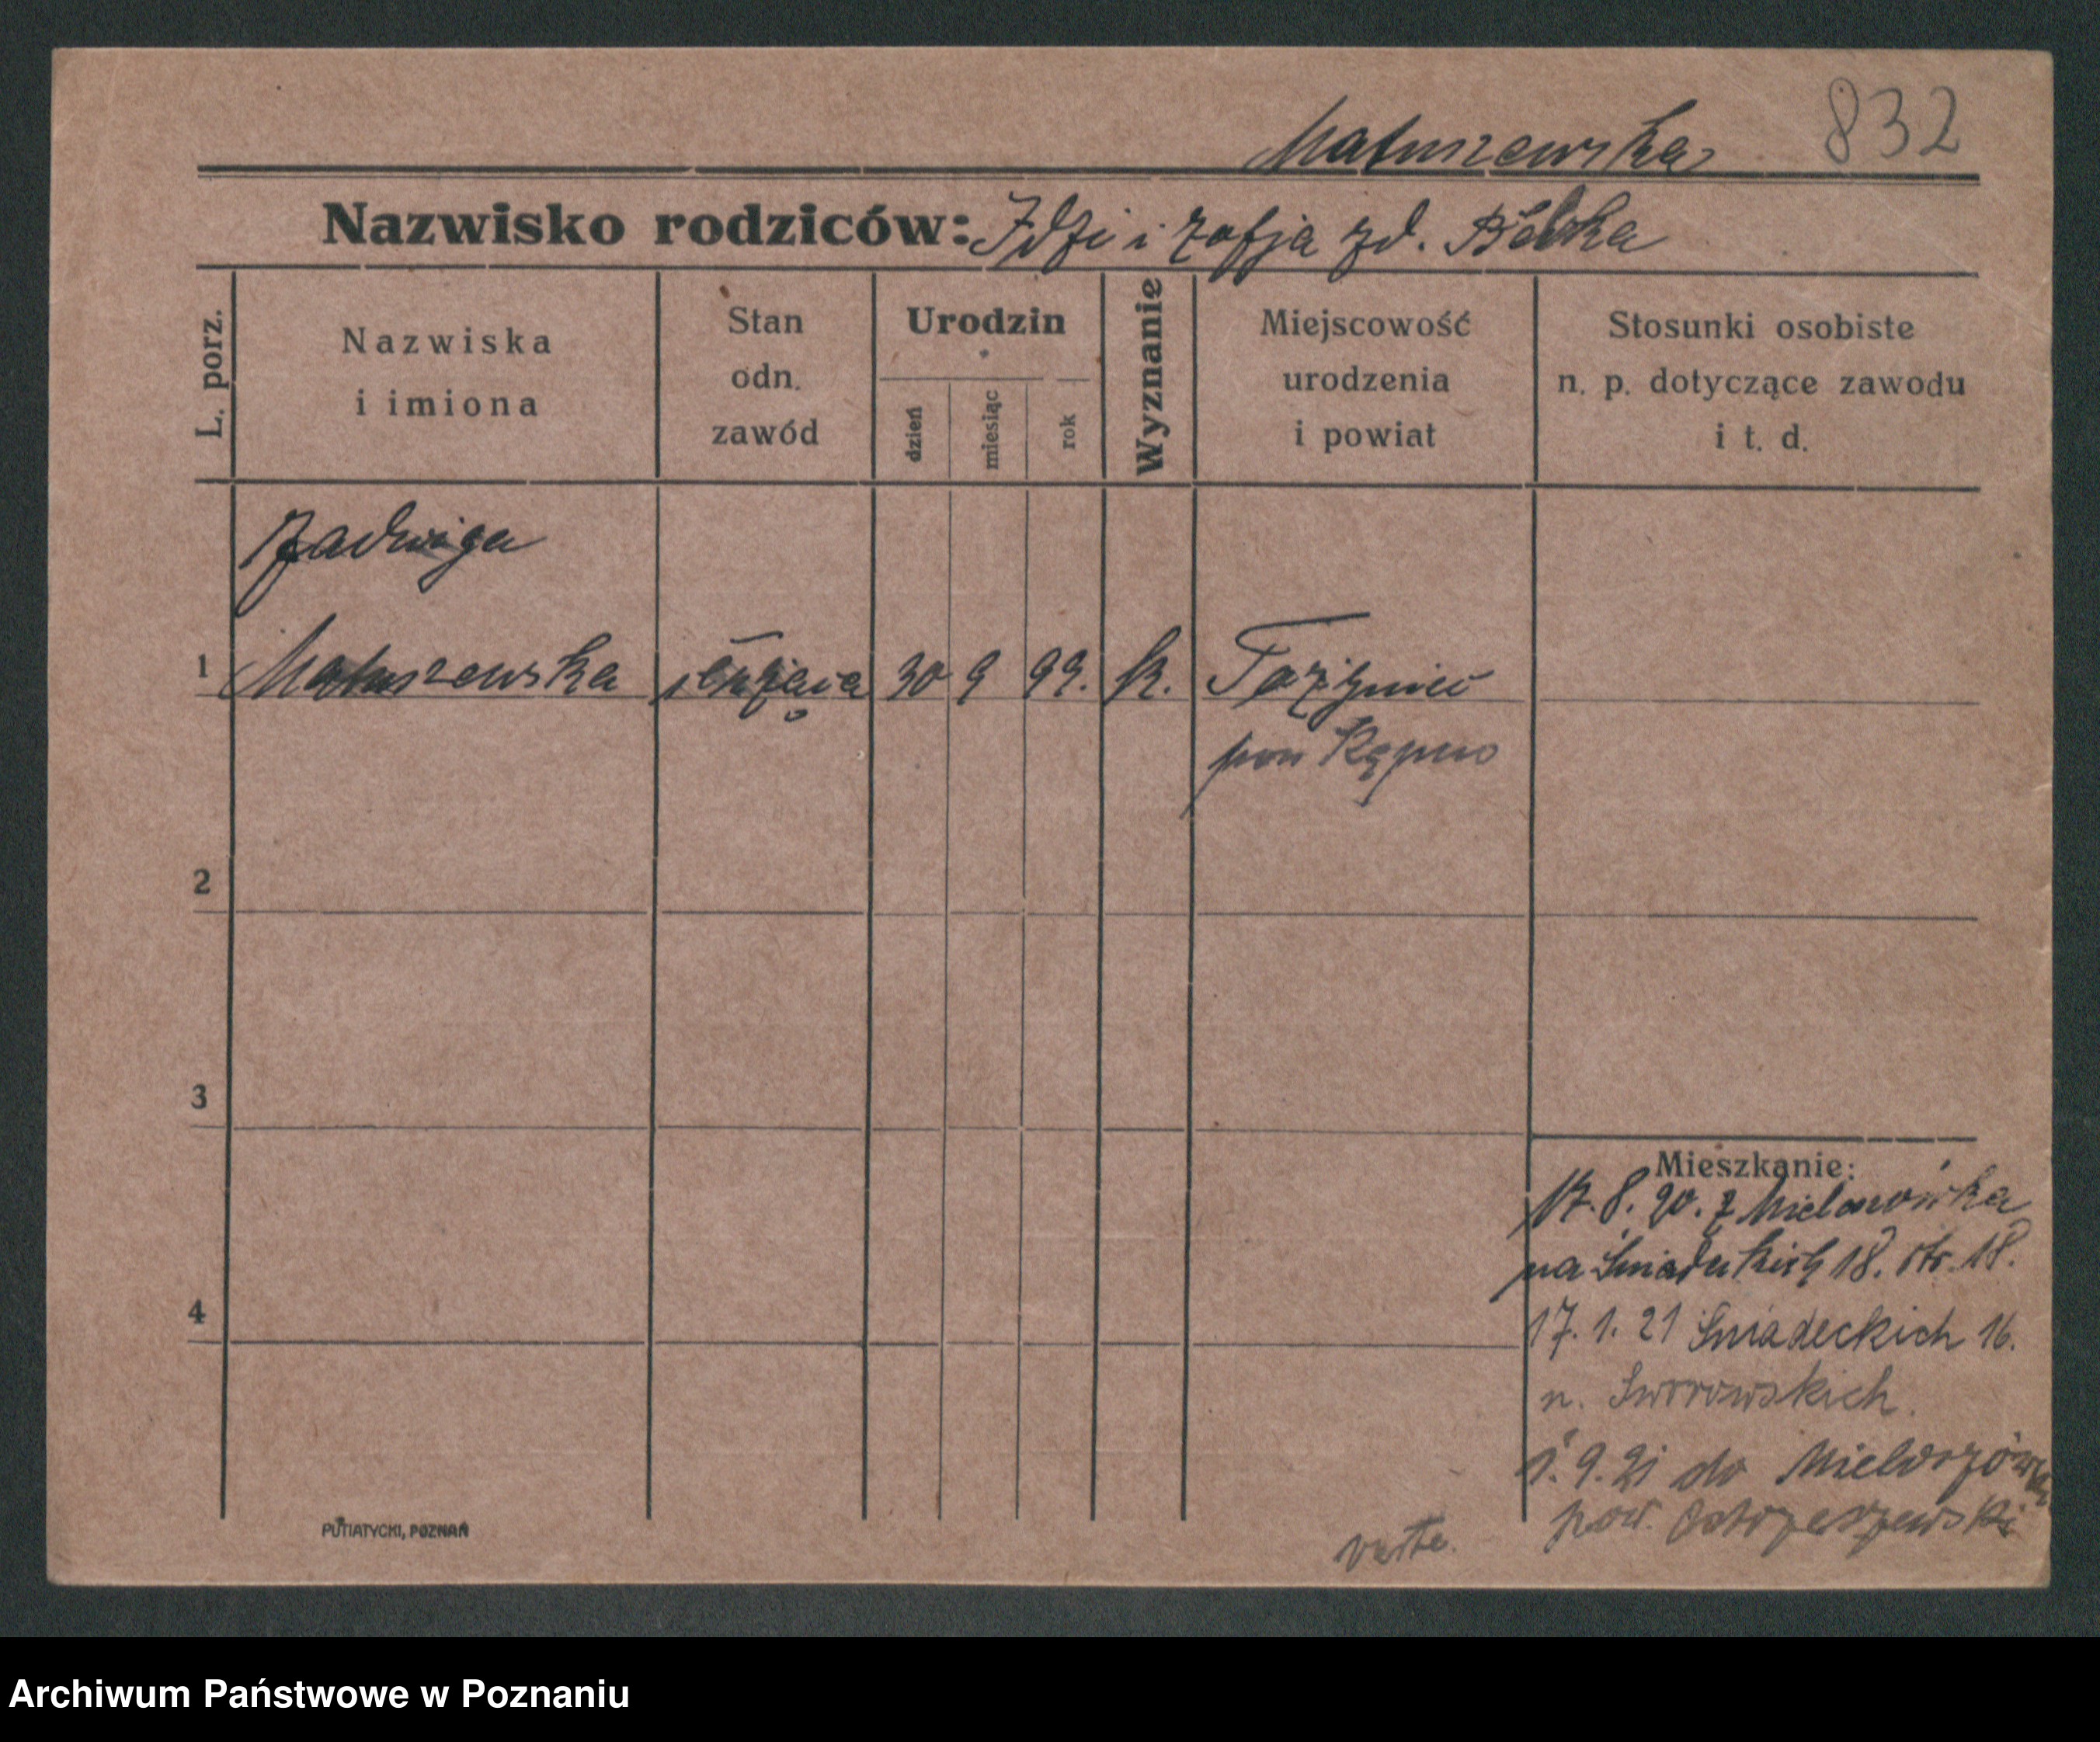 Matuszewska 832
Nazwisko rodziców: Idzi i Zofja zd. Bëbka
L. porz.
Nazwiska
i imiona
Stan
odn.
zawód
Urodzin
dzień
miesiąc
rok
Wyznanie
Miejscowość
urodzenia
i powiat
Stosunki osobiste
n. p. dotyczące zawodu
i t. d.
Jadwiga
1 Matuszewska służąca 30 9 99. k.
pow Kępno
2
3
4
Mieszkanie:
17. 8. 20. z
na Śniadeckich 18. str. 18.
17. 1. 21 Śniadeckich 16.
n.
1. 9. 21 do
pow. Ostrzeszewski
PUTIATYCKI, POZNAŃ
Archiwum Państwowe w Poznaniu